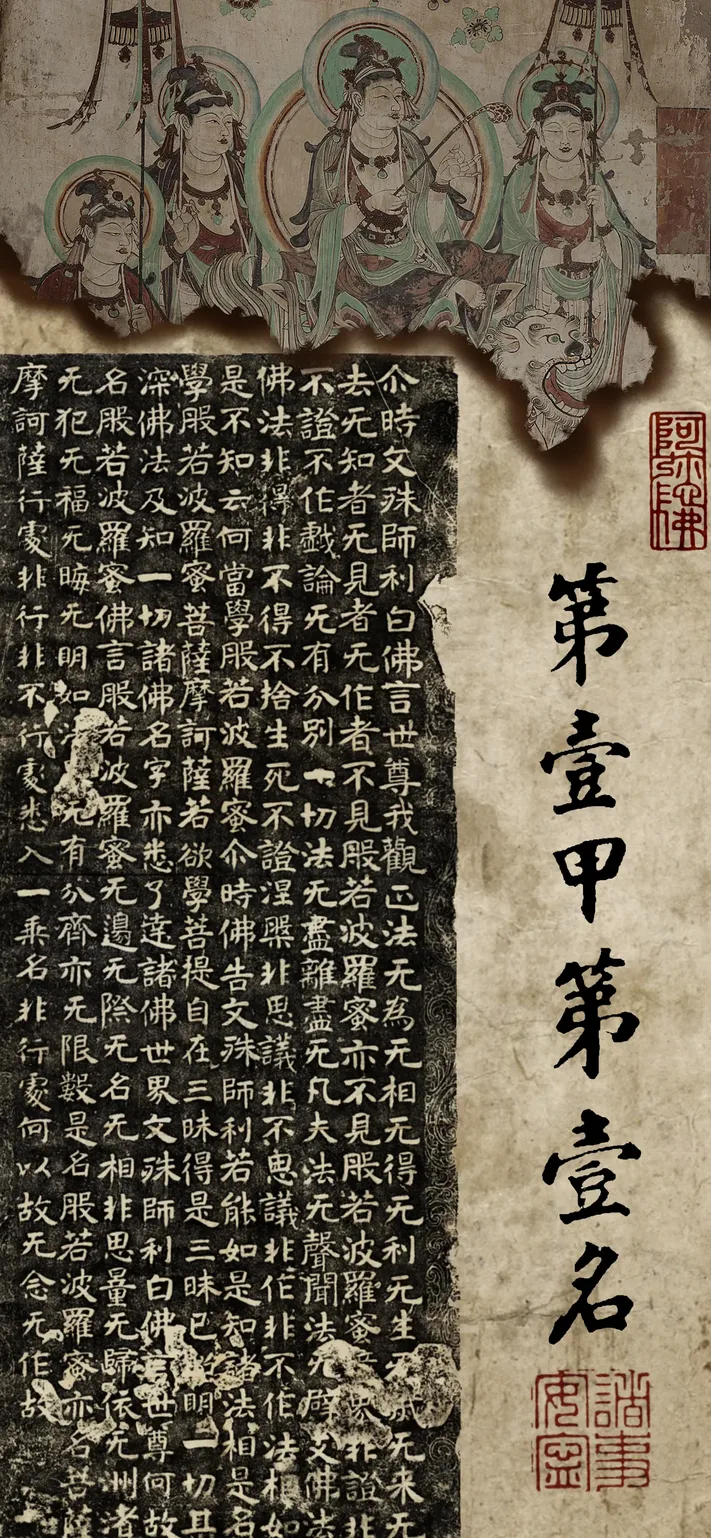 阿弥陀佛
第壹甲第壹名
諸事安寧
尒時文殊師利白佛言世尊我觀正法无為无相无得无利无生无滅无来无
去无知者无見者无作者不見般若波羅蜜亦不見般若波羅蜜界非證非
不證不作戲論无有分別一切法无盡離盡无凡夫法无聲聞法无辟支佛法
佛法非得非不得不捨生死不證涅槃非思議非不思議非作非不作法相如
是不知云何當學般若波羅蜜尒時佛告文殊師利若能如是知諸法相是名
學般若波羅蜜菩薩摩訶薩若欲學菩提自在三昧得是三昧已明一切且
深佛法及知一切諸佛名字亦悉了達諸佛世界文殊師利白佛言世尊何故
名般若波羅蜜佛言般若波羅蜜无邊无際无名无相非思量无歸依无洲渚
无犯无福无晦无明如法无有分齊亦无限數是名般若波羅蜜亦名菩薩
摩訶薩行處非行非不行處悉入一乘名非行處何以故无念无作故